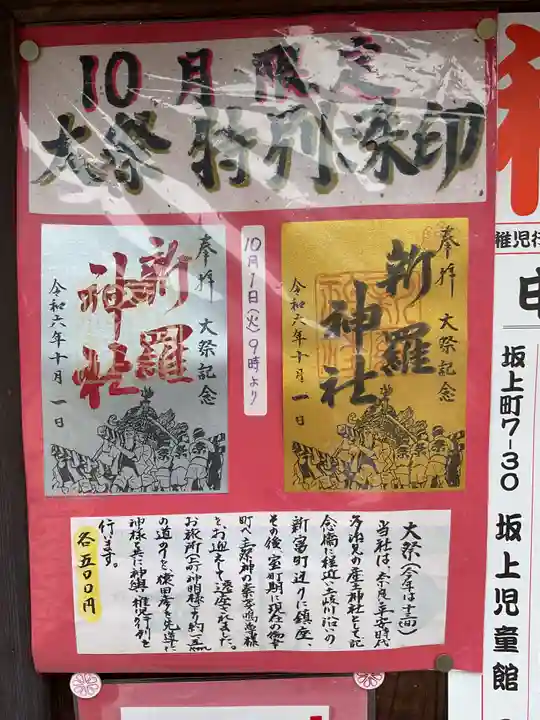 10月限定
大祭特別朱印
奉拝 大祭記念
新羅
神社
令和六年十月一日
10月1日(火)9時より
奉拝 大祭記念
新羅
神社
令和六年十月一日
大祭(今年は十三回)
当社は、奈良、平安時代
多治見の産土神社として記
念橋に程近い土岐川沿いの
新富町辺りに鎮座、
その後、室町期に現在の御幸
町へ主祭神の素戔嗚尊様
をお迎えして遷座されました。
お旅所(上町神明様)まで約一五
の道のりを、猿田彦を先達に
神様と共に神輿、稚児行列を
行います。
各五〇〇円
稚児行
坂上町7-30 坂上児童館